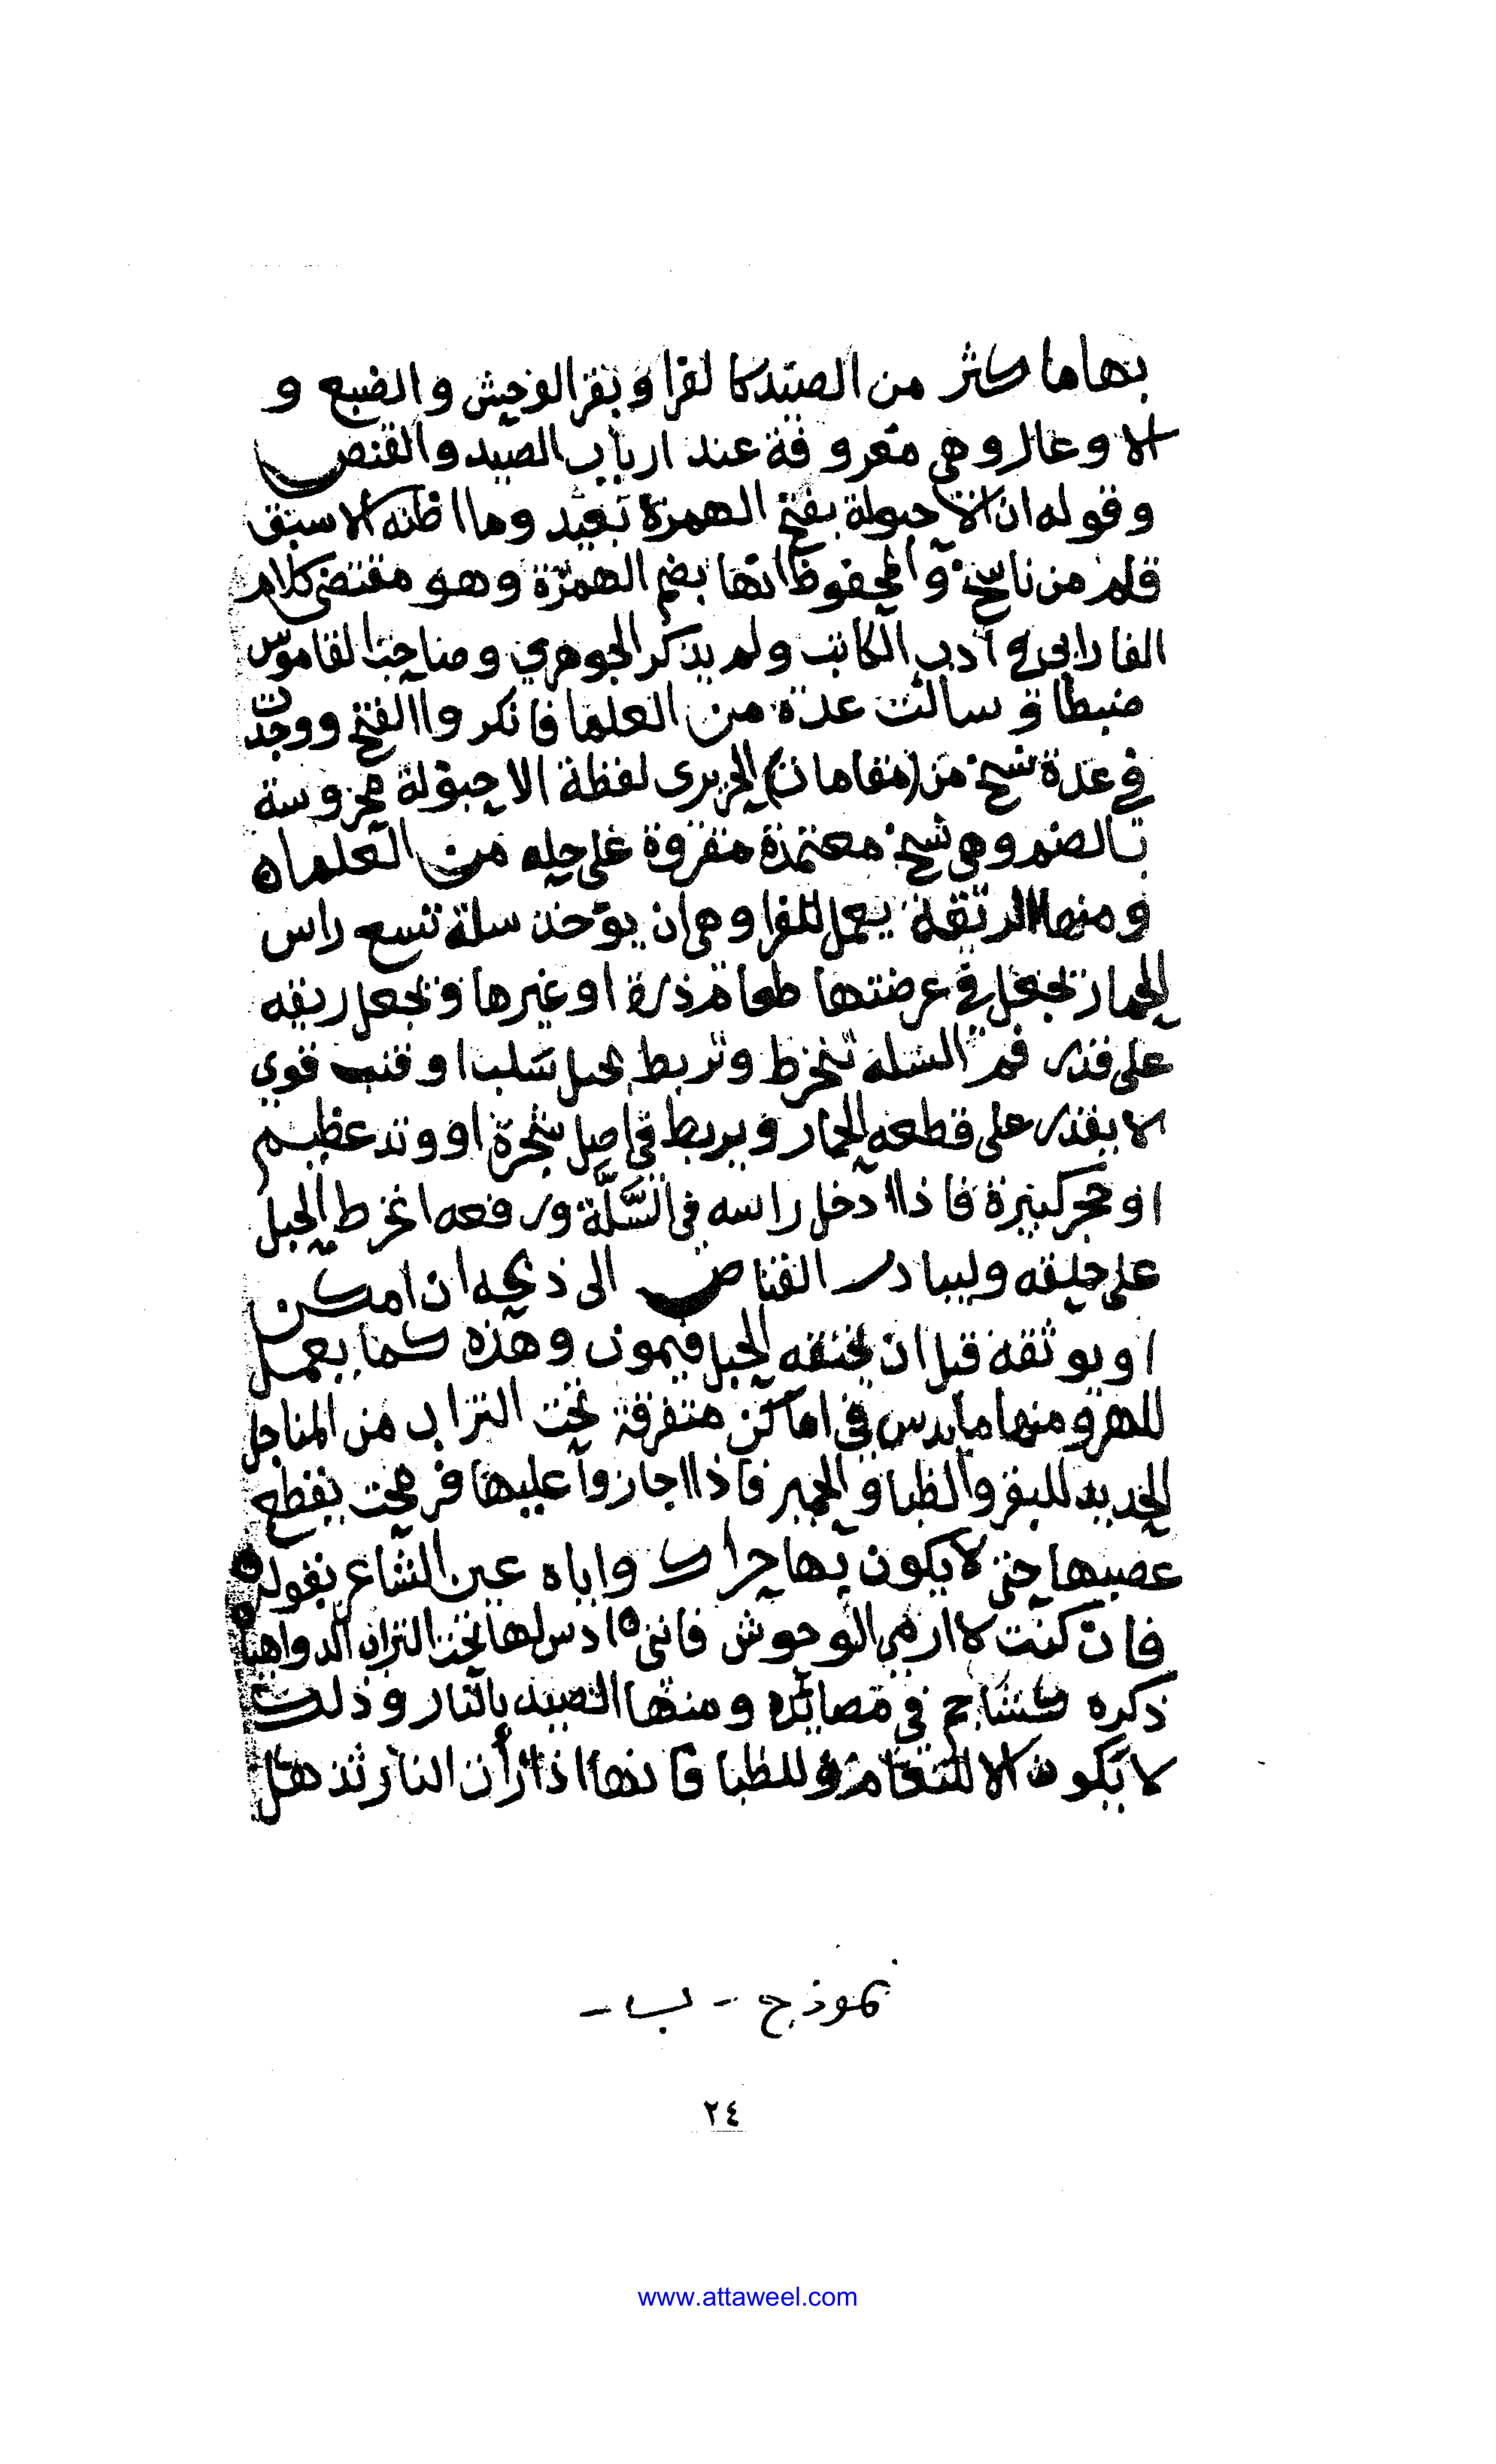 بها ما كثر من الصيد كالفرا وبقر الوحش والضبع و
الاوعال وهي معروفة عند ارباب الصيد والقنص
وقوله ان الاحبولة بفتح الهمزة بعيد وما اظنه الا سبق
قلم من ناسخ والمحفوظ انها بضم الهمزة وهو مقتضى كلام
الفارابي في ادب الكاتب ولم يذكر الجوهري وصاحب القاموس
ضبطا وسالت عدة من العلما فانكروا الفتح ووجدت
في عدة نسخ من (مقامات) الحريري لفظة الاحبولة محروسة
بالضم وهي نسخ معتمدة مقروة على جله من العلماه
ومنها الرتقة يعمل للفرا وهي ان يوخذ سلة تسع راس
الحمار تجعل في عرضتها طعام ذرة او غيرها وتجعل ربقه
على قدر فم السله تنخرط وتربط بحبل سلب او قنب قوي
لا يقدر على قطعه الحمار ويربط في اصل شجرة او وتد عظيم
او حجر كبيرة فاذا ادخل راسه في السَّلَّة ورفعه انخرط الحبل
على حلقه وليبادر القناص الى ذبحه ان امكن
او يوثقه قبل ان يخنقه الحبل فيموت وهذه كما يعمل
للهر ومنها ما يدس في اماكن متفرقة تحت التراب من المناجل
الحديد للبقر والظبا والحمير فاذا اجازوا عليها فرمحت بقطع
عصبها حتى لا يكون بها حراك واياه عين الشاعر بقوله
فان كنت لا ارمي الوحوش فانني ادس لها تحت التراب الدواهيا
ذكره كشاجم في مصائده ومنها الصيد بالنار وذلك
لا يكون الا للنعام وللظبا فانها اذا رأن النار تذهل
نموذج - ب -
٢٤
www.attaweel.com